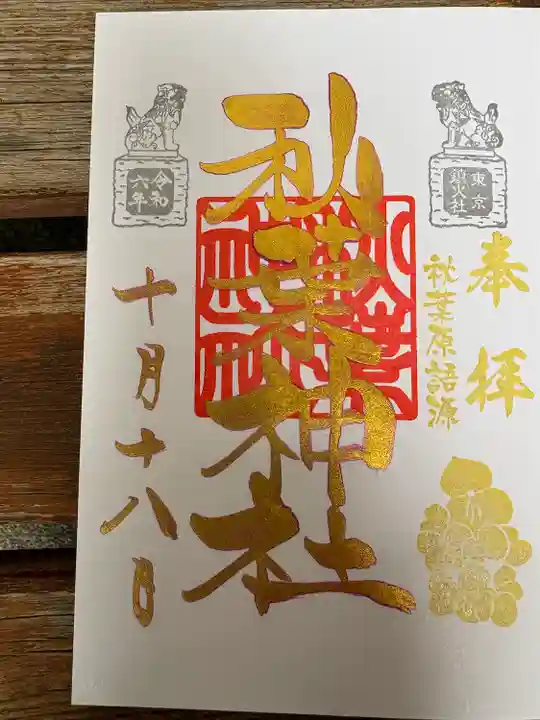 奉拝
東京
鎮火社
秋葉原語源
秋葉神社
令和
六年
十月十八日